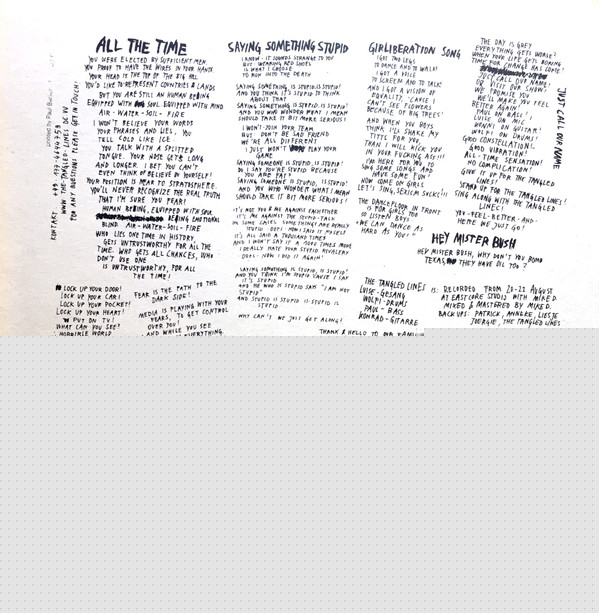 ALL THE TIME
YOU WERE ELECTED BY SUFFICIENT MEN
YOU PROUD TO HAVE THE WIRES IN YOUR HANDS
YOUR HEAD IS THE TOP OF THE BIG HILL
YOU'D LIKE TO REPRESENT COUNTRIES & LANDS
BUT YOU ARE STILL AN HUMAN BEING
EQUIPPED WITH SOUL EQUIPPED WITH MIND
AIR - WATER - SOIL - FIRE
I WON'T BELIEVE YOUR WORDS
YOUR PHRASES AND LIES, YOU
TELL COLD LIKE ICE
YOU TALK WITH A SPLITTED
TONGUE. YOUR NOSE GETS LONG
AND LONGER I BET YOU CAN'T
EVEN THINK OF BELIEVE IN YOURSELF!
YOUR POSITION IS NEAR TO STRATOSPHERE.
YOU'LL NEVER RECOGNIZE THE REAL TRUTH
THAT I'M SURE YOU FEAR!
HUMAN BEING, EQUIPPED WITH SOUL
BEING EMOTIONAL
BLIND AIR - WATER - SOIL - FIRE
WHO LIES ONE TIME IN HISTORY,
GETS UNTRUSTWORTHY FOR ALL THE
TIME. WHO GETS ALL CHANCES, WHO
DON'T USE ONE
IS UNTRUSTWORTHY, FOR ALL
THE TIME!
LOCK UP YOUR DOOR!
LOCK UP YOUR CAR!
LOCK UP YOUR POCKET
LOCK UP YOUR HEART!
PUT ON TV!
WHAT CAN YOU SEE?
HORRIBLE WORLD
FEAR IS THE PATH TO THE
DARK SIDE!
MEDIA IS PLAYING WITH YOUR
FEARS, TO GET CONTROL
OVER YOU!
AND WHILE YOU SEE
EVERYTHING
KONTAKT
WWW.THE-TANGLED-LINES.DE.VU
FOR ANY QUESTIONS PLEASE GET IN TOUCH!
SAYING SOMETHING STUPID
I KNOW - IT SOUNDS STRANGE TO YOU
BUT WEARING RED SHOES
IS WHAT I CHOOSE
TO RUN INTO THE DEATH
SAYING SOMETHING IS STUPID, IS STUPID!
AND YOU THINK IT'S STUPID TO THINK
ABOUT THAT
SAYING SOMETHING IS STUPID, IS STUPID!
AND YOU WONDER WHAT I MEAN
SHOULD TAKE IT BIT MORE SERIOUS!
I WON'T JOIN YOUR TEAM
BUT DON'T BE SAD FRIEND
WE'RE ALL DIFFERENT
I JUST WON'T PLAY YOUR
GAME
SAYING SOMEONE IS STUPID, IS STUPID!
DO I SAY YOU'RE STUPID BECAUSE
YOU ARE FAT?
SAYING SOMEONE IS STUPID, IS STUPID!
AND YOU WONDER WHAT I MEAN
SHOULD TAKE IT BIT MORE SERIOUS!
IT'S NOT YOU & ME AGAINST EACHOTHER
IT'S ME AGAINST THE STUPID-TALK
IN SOME CASES SOMETHINGS ARE REALLY
STUPID
IT'S ALL SAID A THOUSAND TIMES
AND I WON'T SAY IT A 1000 TIMES MORE
I REALLY HATE YOUR STUPID RIVALERY
OOPS - NOW I DID IT AGAIN!
SAYING SOMETHING IS STUPID, IS STUPID!
AND YOU THINK I'M STUPID 'CAUSE I SAY
IT'S STUPID
AND HE WHO IS STUPID SAYS "I AM NOT
STUPID"
AND STUPID IS STUPID IS STUPID IS
STUPID
WHY CAN'T WE JUST GET ALONG!
GIRLIBERATION SONG
I GOT TWO LEGS
TO DANCE AND TO WALK!
I GOT A VOICE
TO SCREAM AND TO TALK!
AND I GOT A VISION OF
EQUALITY, 'CAUSE I
CAN'T SEE FLOWERS
BECAUSE OF BIG TREES'
AND WHEN YOU BOYS
THINK I'LL SHAKE MY
TITS FOR YOU,
THAN I WILL KICK YOU
IN YOUR FUCKING ASS!!!
I'M HERE FOR YOU TO
SING SOME SONGS AND
HAVE SOME FUN
NOW COME ON GIRLS
LET'S SING, SEXISM SUCKS!!!
THE DANCEFLOOR IN FRONT
IS FOR GIRLS TOO
SO LISTEN BOYS
"WE CAN DANCE AS
HARD AS YOU!"
THE DAY IS GREY
EVERYTHING GETS WORSE?
WHEN YOUR LIFE GETS BORING,
TIME FOR CHANGE HAS COME!
JUST CALL OUR NAME
OR VISIT OUR SHOWS!
WE PROMISE YOU
WE'LL MAKE YOU FEEL
BETTER AGAIN!
PAUL ON BASS!
LUISE ON MIC
KONNI ON GUITAR!
WOLPI ON DRUMS!
GOOD CONSTELLATION!
GOOD VIBRATION!
ALL-TIME SENSATION!
NO COMPLICATION!
GIVE IT UP FOR THE TANGLED
LINES!
STAND UP FOR THE TANGLED LINES!
SING ALONG WITH THE TANGLED
LINES!
YOU-FEEL-BETTER-AND-
HERE WE JUST GO!
JUST CALL OUR NAME
HEY MISTER BUSH
HEY MISTER BUSH, WHY DON'T YOU BOMB
TEXAS, THEY HAVE OIL TOO?
THE TANGLED LINES IS:
LUISE - GESANG
WOLPI - DRUMS
PAUL - BASS
KONRAD - GITARRE
RECORDED FROM 20-22 AUGUST
AT EASTCORE STUDIO WITH MIKE D.
MIXED & MASTERED BY MIKE D.
BACKUPS: PATRICK, ANNEKE, LIESJE
JOERGIE, THE TANGLED LINES
THANK & HELLO TO OUR